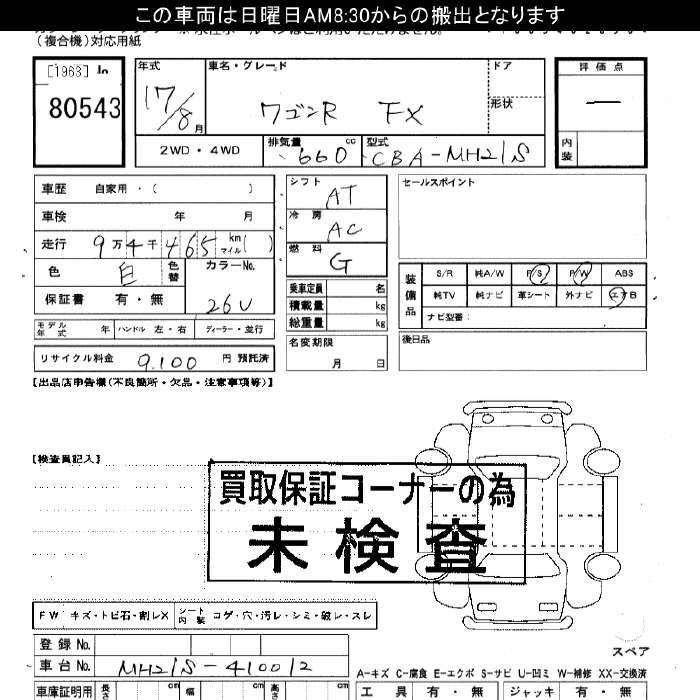 この車両は日曜日AM8:30からの搬出となります
（複合機）対応用紙
[1963] 80543
年式 17/8月
車名・グレード ワゴンR FX
ドア
形状
評価点 —
内装
2WD・4WD
排気量 660 cc
型式 CBA-MH21S
車歴 自家用・（ ）
車検 年 月
走行 9万4千465 km マイル( )
色 白 色替
カラーNo. 26U
保証書 有・無
モデル年式 年 ハンドル 左・右 ディーラー・並行
リサイクル料金 9,100 円 預託済
シフト AT
冷房 AC
燃料 G
乗車定員 名
積載量 kg
総重量 kg
名変期限 月 日
セールスポイント
装備品 S/R 純A/W P/S P/W ABS
純TV 純ナビ 革シート 外ナビ エアB
ナビ型番：
後日品
【出品店申告欄(不良箇所・欠品・注意事項等)】
【検査員記入】
買取保証コーナーの為
未検査
FW キズ・トビ石・割レX シート内装 コゲ・穴・汚レ・シミ・破レ・スレ
登録No.
車台No. MH21S-410012
スペア
A-キズ C-腐食 E-エクボ S-サビ U-凹ミ W-補修 XX-交換済
車庫証明用 長さ cm 幅 cm 高さ cm
工具 有・無 ジャッキ 有・無